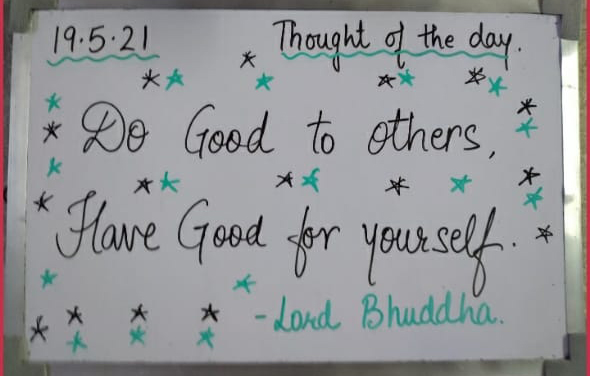 19.5.21 Thought of the day.
Do Good to others,
Have Good for yourself.
-Lord Bhuddha.